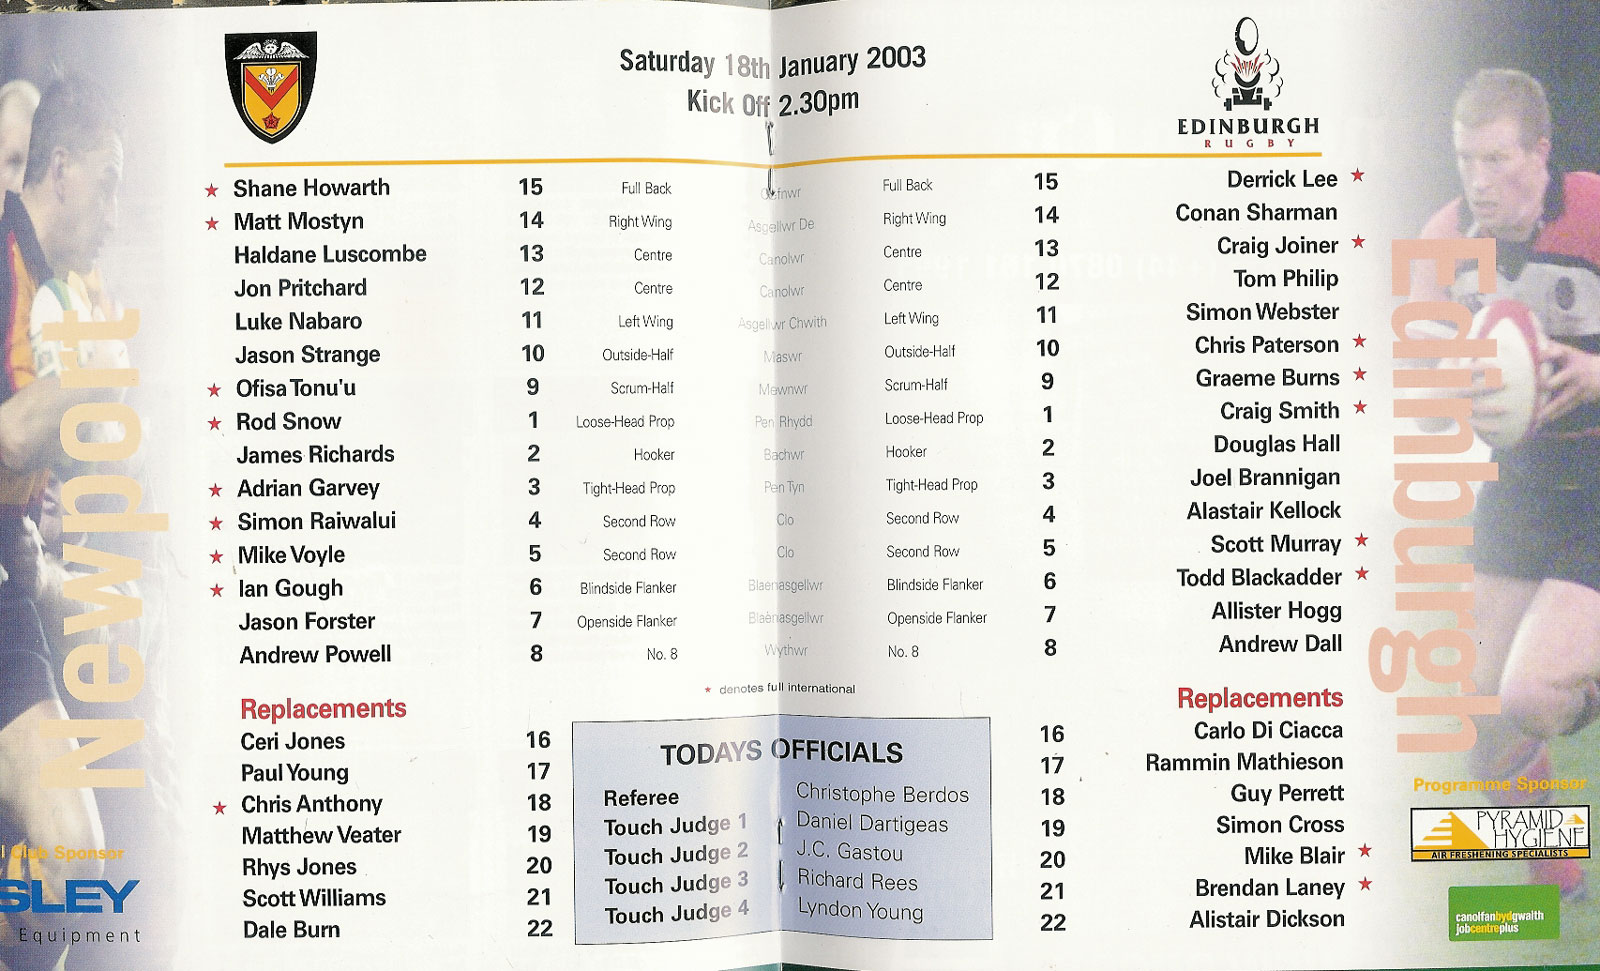 Saturday 18th January 2003
Kick Off 2.30pm
EDINBURGH
RUGBY
★ Shane Howarth 15 Full Back Cefnwr Full Back 15 Derrick Lee ★
★ Matt Mostyn 14 Right Wing Asgellwr De Right Wing 14 Conan Sharman
Haldane Luscombe 13 Centre Canolwr Centre 13 Craig Joiner ★
Jon Pritchard 12 Centre Canolwr Centre 12 Tom Philip
Luke Nabaro 11 Left Wing Asgellwr Chwith Left Wing 11 Simon Webster
Jason Strange 10 Outside-Half Maswr Outside-Half 10 Chris Paterson ★
★ Ofisa Tonu'u 9 Scrum-Half Mewnwr Scrum-Half 9 Graeme Burns ★
★ Rod Snow 1 Loose-Head Prop Pen Rhydd Loose-Head Prop 1 Craig Smith ★
James Richards 2 Hooker Bachwr Hooker 2 Douglas Hall
★ Adrian Garvey 3 Tight-Head Prop Pen Tyn Tight-Head Prop 3 Joel Brannigan
★ Simon Raiwalui 4 Second Row Clo Second Row 4 Alastair Kellock
★ Mike Voyle 5 Second Row Clo Second Row 5 Scott Murray ★
★ Ian Gough 6 Blindside Flanker Blaenasgellwr Blindside Flanker 6 Todd Blackadder ★
Jason Forster 7 Openside Flanker Blaenasgellwr Openside Flanker 7 Allister Hogg
Andrew Powell 8 No. 8 Wythwr No. 8 8 Andrew Dall
★ denotes full international
Replacements
Ceri Jones 16
Paul Young 17
★ Chris Anthony 18
Matthew Veater 19
Rhys Jones 20
Scott Williams 21
Dale Burn 22
TODAYS OFFICIALS
Referee Christophe Berdos
Touch Judge 1 Daniel Dartigeas
Touch Judge 2 J.C. Gastou
Touch Judge 3 Richard Rees
Touch Judge 4 Lyndon Young
Replacements
16 Carlo Di Ciacca
17 Rammin Mathieson
18 Guy Perrett
19 Simon Cross
20 Mike Blair ★
21 Brendan Laney ★
22 Alistair Dickson
Newport
Edinburgh
l Club Sponsor
SLEY
Equipment
Programme Sponsor
PYRAMID
HYGIENE
AIR FRESHENING SPECIALISTS
canolfanbydgwaith
jobcentreplus